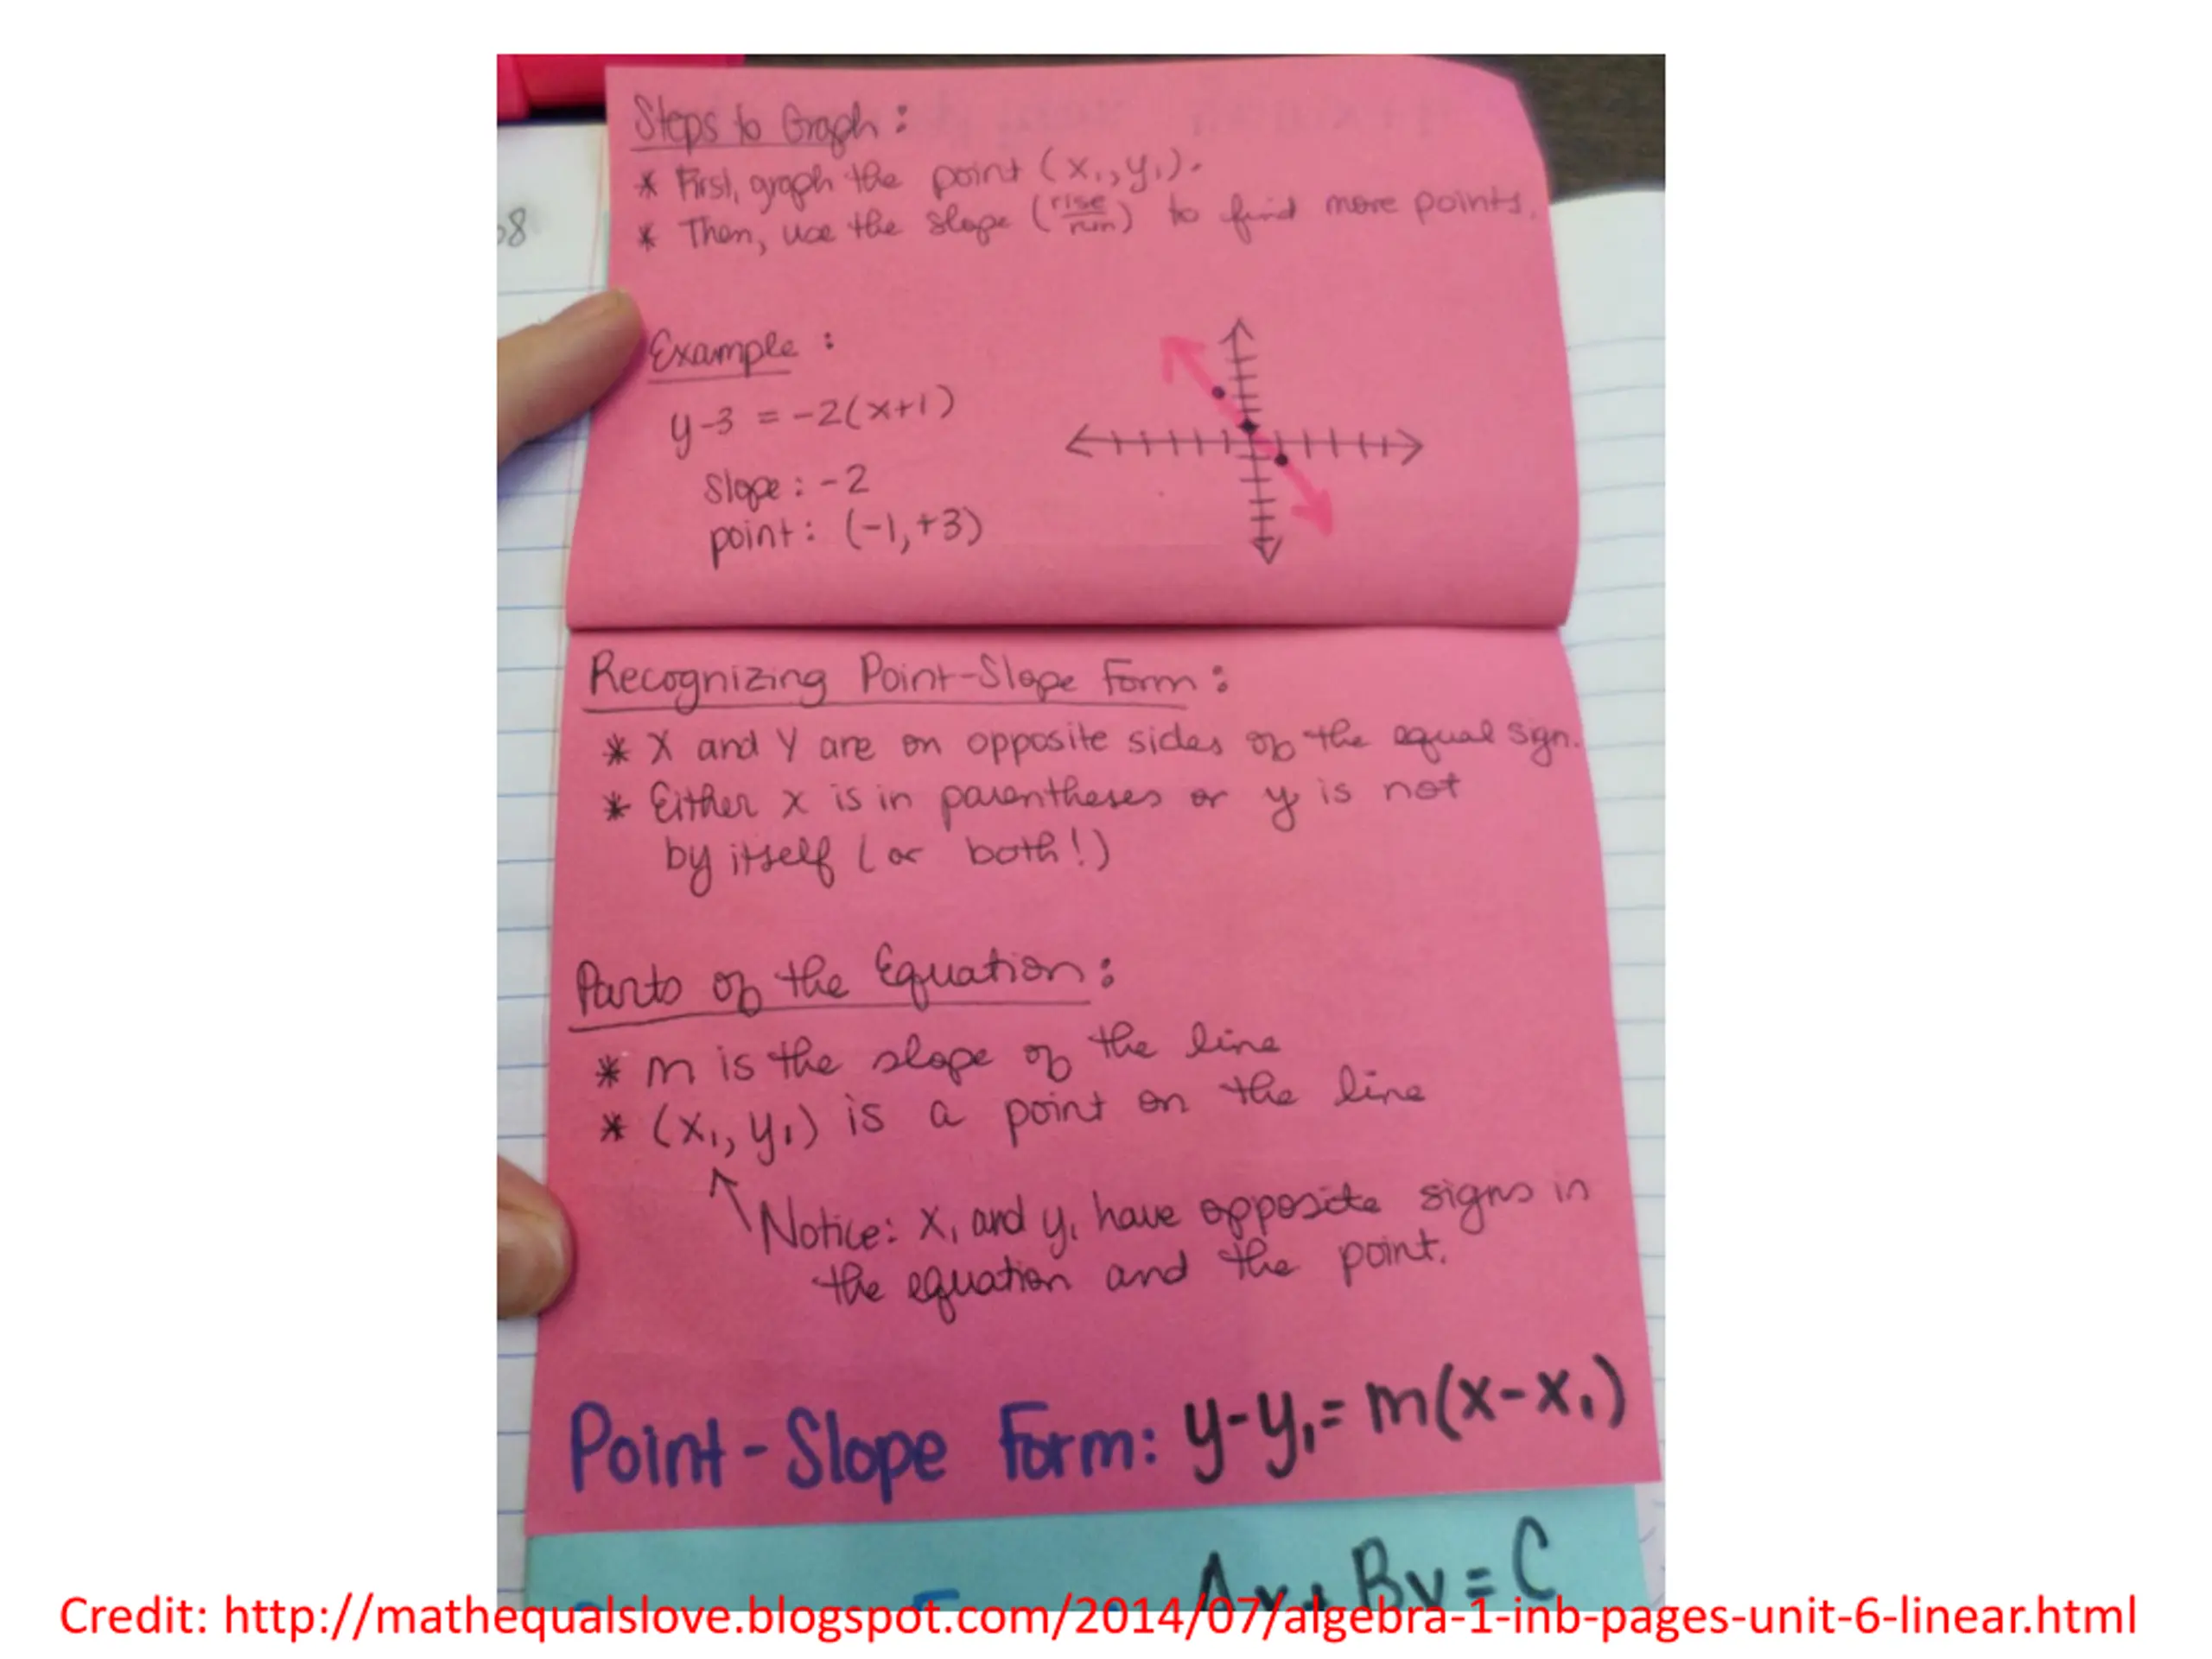 Steps to Graph:
* First, graph the point (x₁, y₁).
* Then, use the slope (rise/run) to find more points.
08
Example:
y-3 = -2(x+1)
slope: -2
point: (-1,+3)
Recognizing Point-Slope Form:
* X and Y are on opposite sides of the equal sign.
* Either x is in parentheses or y is not
by itself (or both!)
Parts of the Equation:
* m is the slope of the line
* (x₁, y₁) is a point on the line
Notice: x₁ and y₁ have opposite signs in
the equation and the point.
Point-Slope Form: y-y₁= m(x-x₁)
Ax+By=C
Credit: http://mathequalslove.blogspot.com/2014/07/algebra-1-inb-pages-unit-6-linear.html